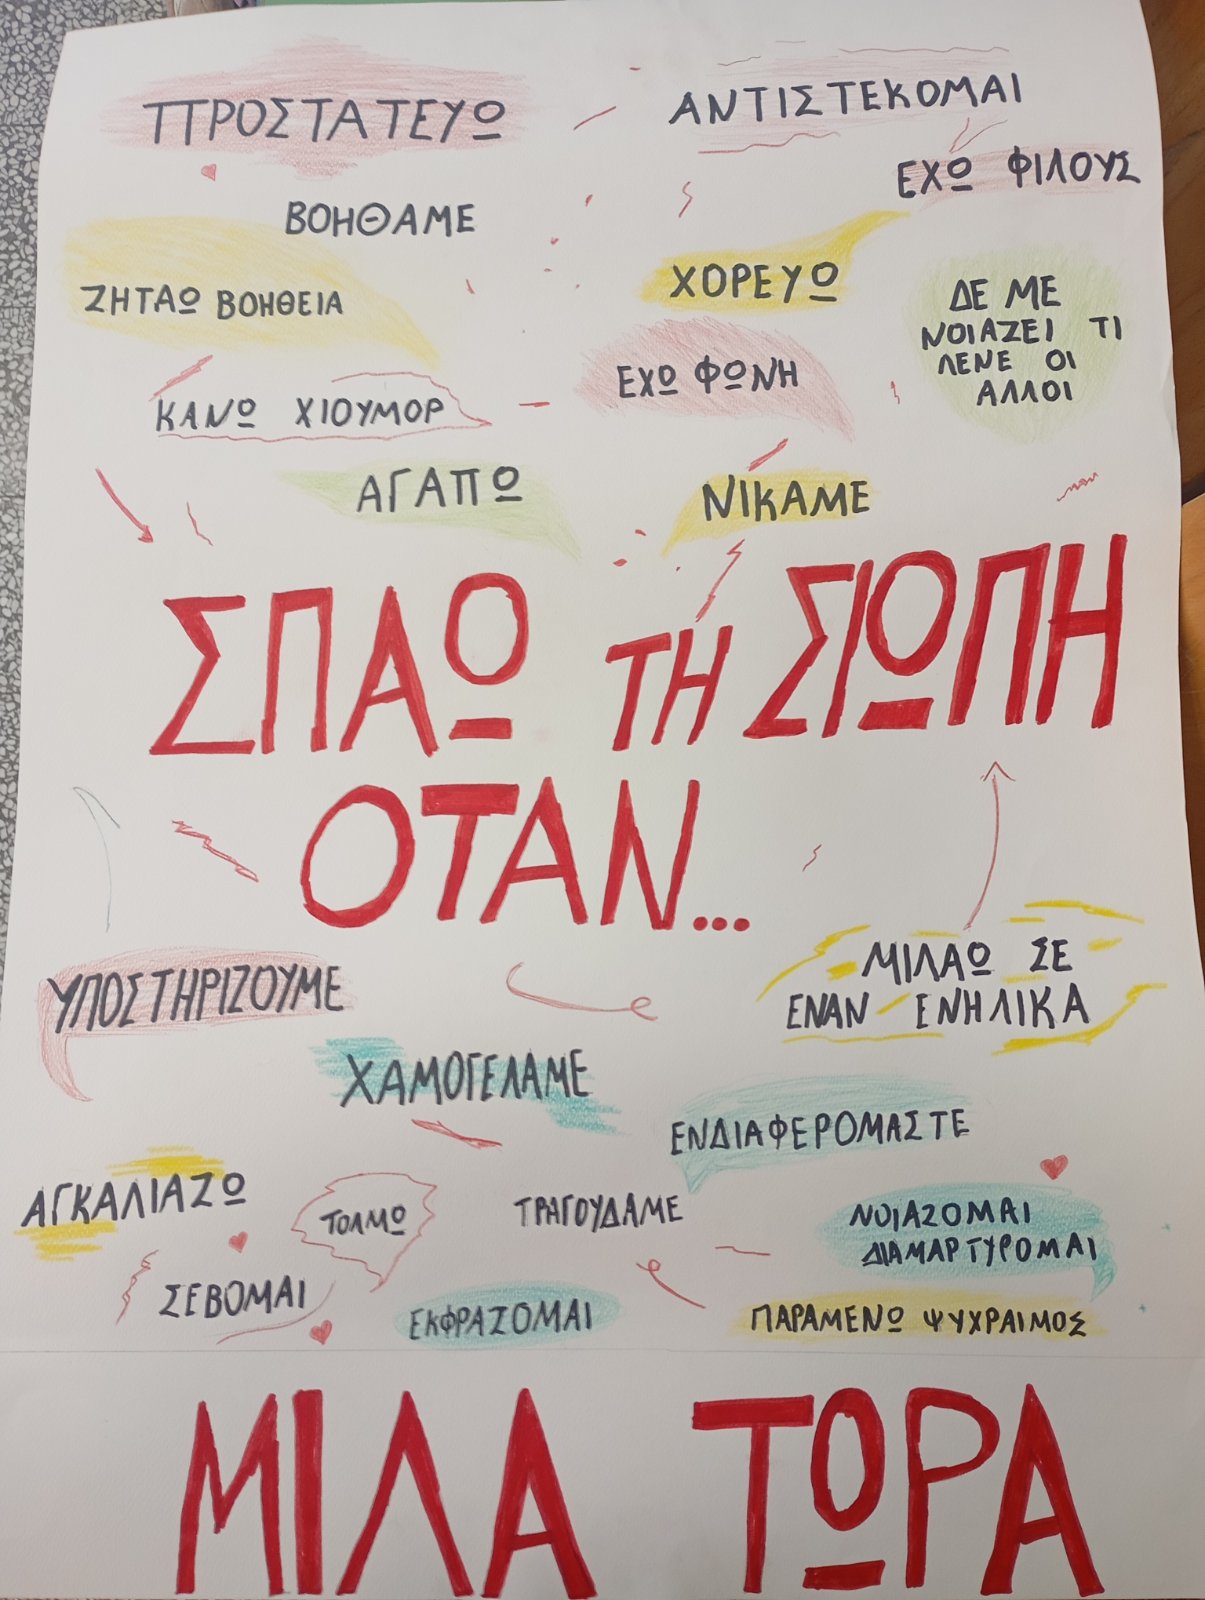 ΠΡΟΣΤΑΤΕΥΩ
ΑΝΤΙΣΤΕΚΟΜΑΙ
ΕΧΩ ΦΙΛΟΥΣ
ΒΟΗΘΑΜΕ
ΖΗΤΑΩ ΒΟΗΘΕΙΑ
ΧΟΡΕΥΩ
ΔΕ ΜΕ
ΝΟΙΑΖΕΙ ΤΙ
ΛΕΝΕ ΟΙ
ΑΛΛΟΙ
ΕΧΩ ΦΩΝΗ
ΚΑΝΩ ΧΙΟΥΜΟΡ
ΑΓΑΠΩ
ΝΙΚΑΜΕ
ΣΠΑΩ ΤΗ ΣΙΩΠΗ
ΟΤΑΝ...
ΥΠΟΣΤΗΡΙΖΟΥΜΕ
ΜΙΛΑΩ ΣΕ
ΕΝΑΝ ΕΝΗΛΙΚΑ
ΧΑΜΟΓΕΛΑΜΕ
ΕΝΔΙΑΦΕΡΟΜΑΣΤΕ
ΑΓΚΑΛΙΑΖΩ
ΤΟΛΜΩ
ΤΡΑΓΟΥΔΑΜΕ
ΝΟΙΑΖΟΜΑΙ
ΔΙΑΜΑΡΤΥΡΟΜΑΙ
ΣΕΒΟΜΑΙ
ΕΚΦΡΑΖΟΜΑΙ
ΠΑΡΑΜΕΝΩ ΨΥΧΡΑΙΜΟΣ
ΜΙΛΑ ΤΩΡΑ